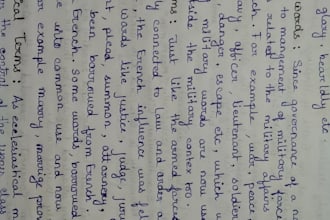 gary, heartily etc.
words: Since governance of a n
to management of military forces
related to the military affairs
ch. For example, war, peace
avy, officer, lieutenant, soldier
danger, escape etc, which u
f military words are now us
side the military context too.
ms: Just like the armed forces
ly connected to law and order a
the French influence was fel
words like justice, judge, jur
t, plead, summon, attorney,
been borrowed from French.
French. Some words borrowed
e into common use and now
or example marry, marriage, prov
cal Terms: As ecclesiastical m
the control of the upper class